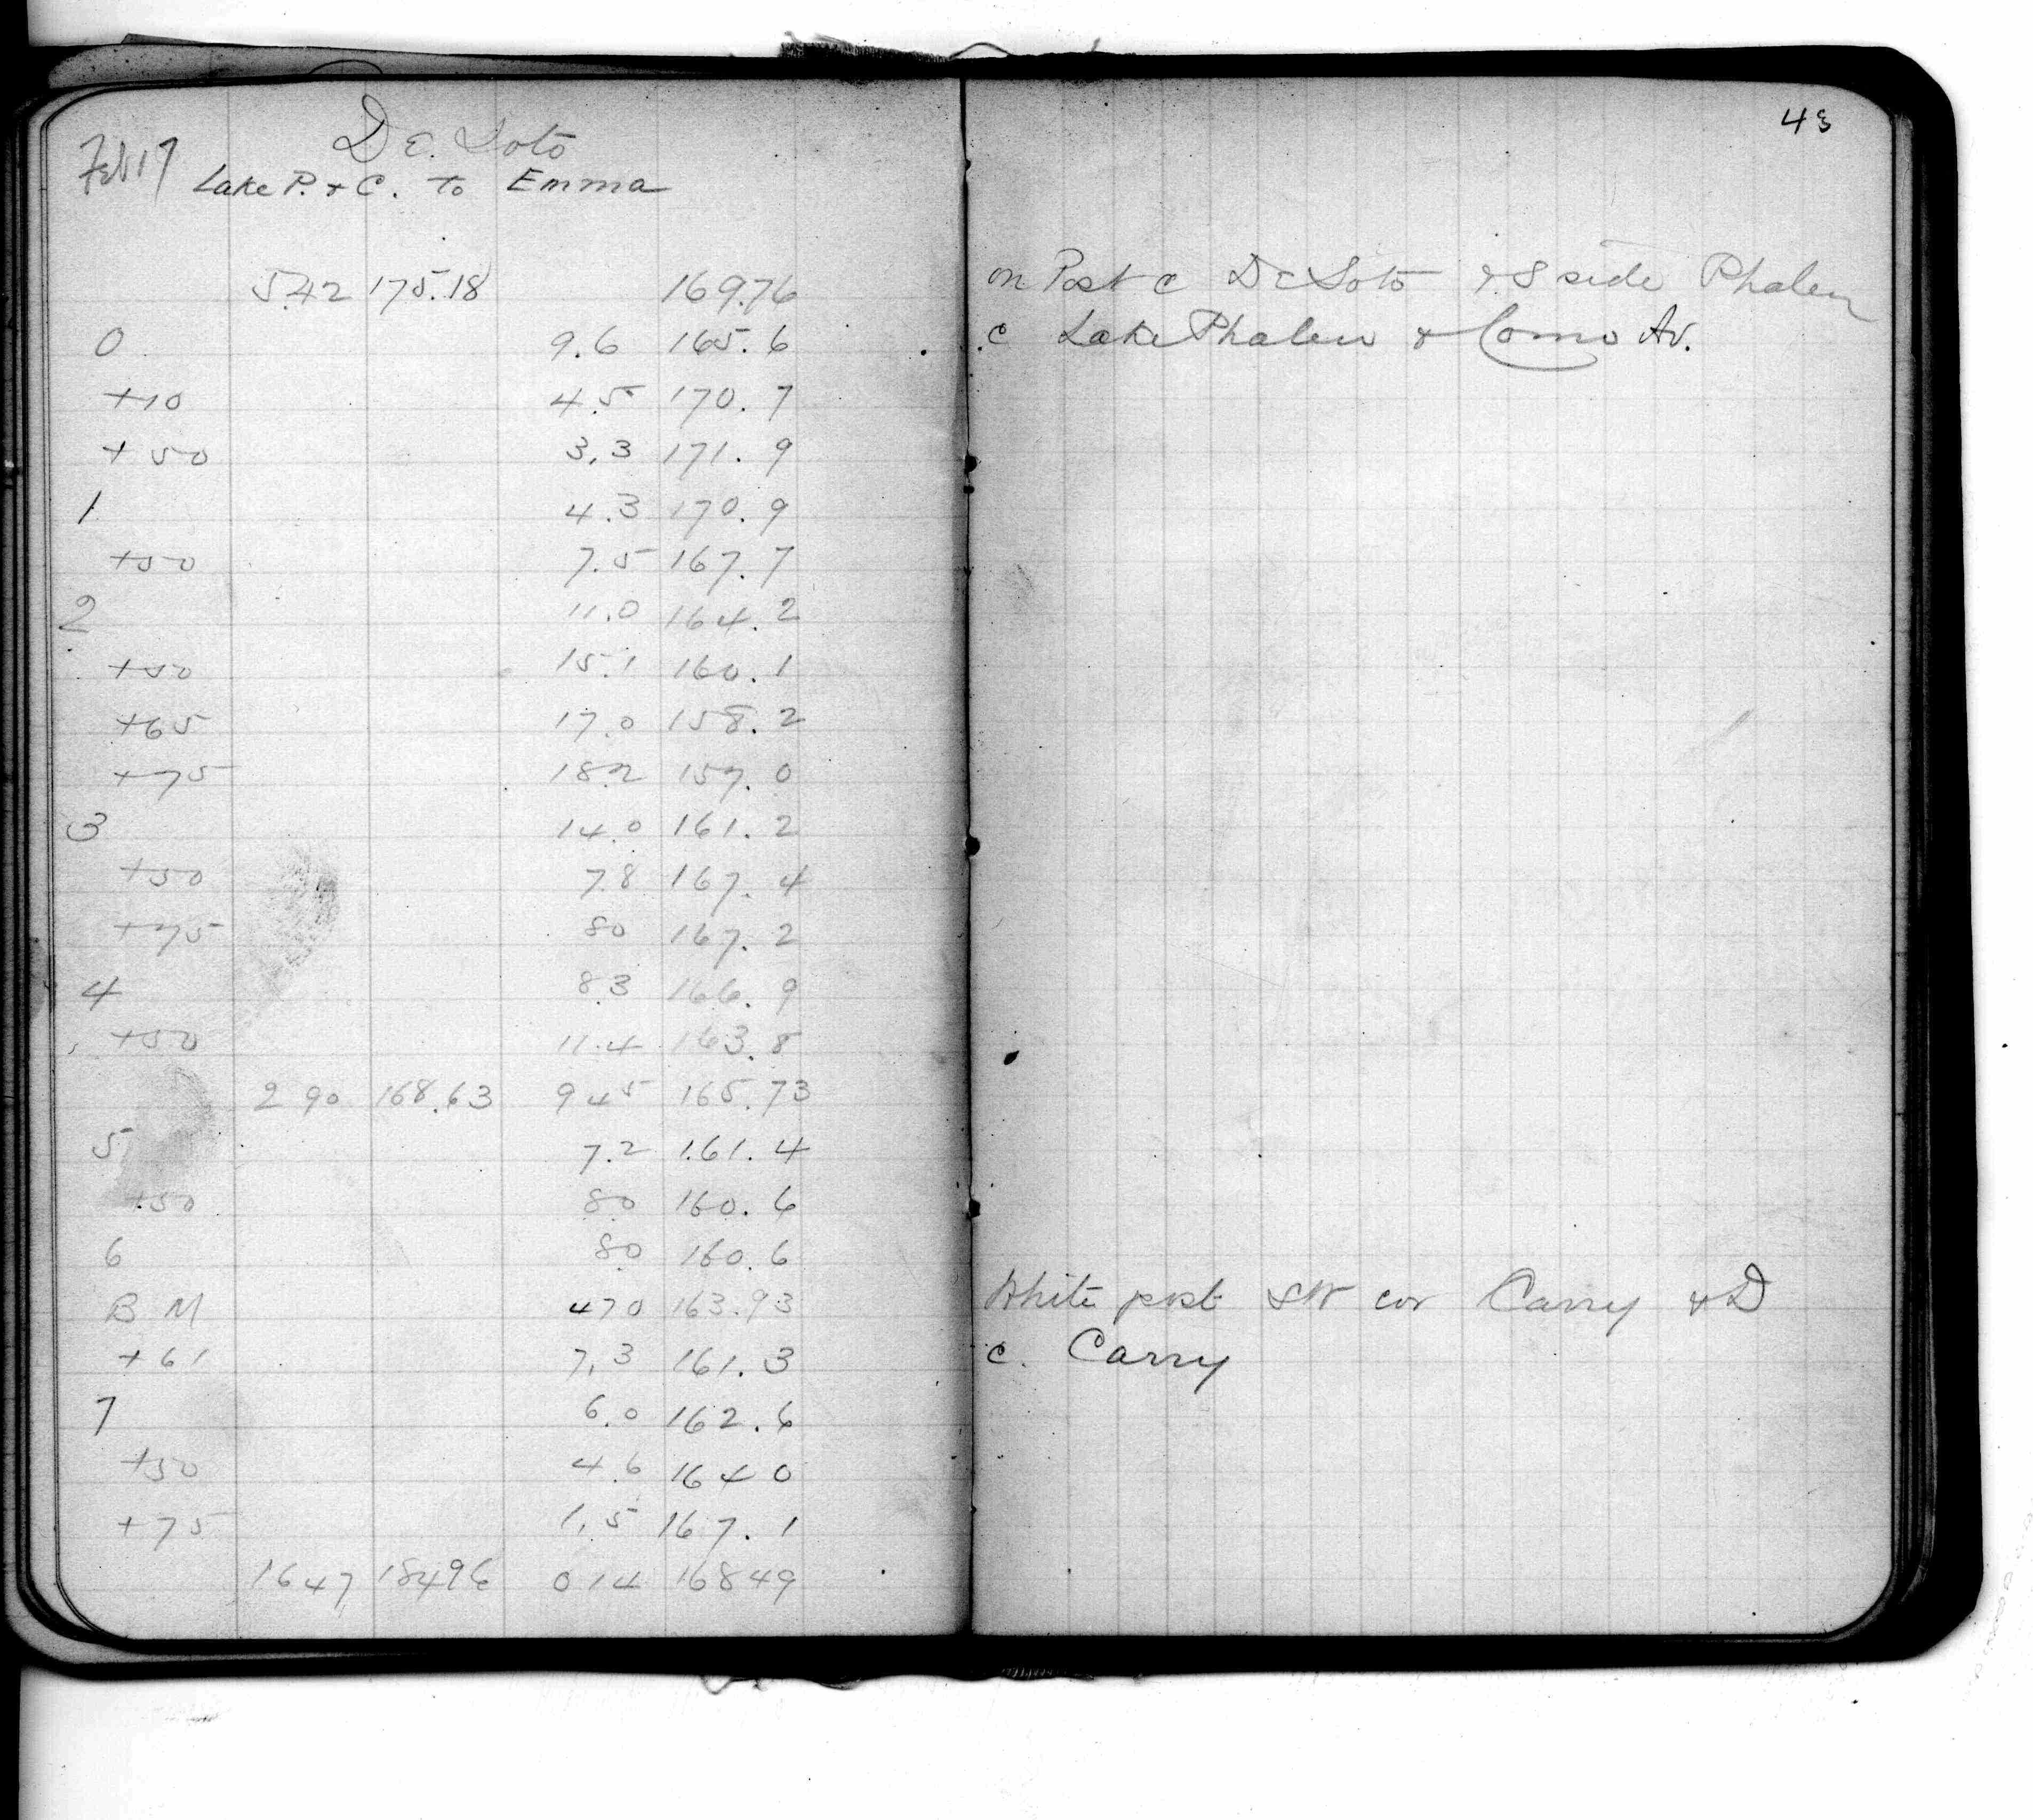 43
Feb 17 De. Soto
Lake P. & C. to Emma
5.42 175.18 169.76 on Post c De Soto & S side Phalen
0 9.6 165.6 c Lake Phalen & Como Av.
+10 4.5 170.7
+50 3.3 171.9
1 4.3 170.9
+50 7.5 167.7
2 11.0 164.2
+50 15.1 160.1
+65 17.0 158.2
+75 18.2 157.0
3 14.0 161.2
+50 7.8 167.4
+75 80 167.2
4 8.3 166.9
+50 11.4 163.8
2 90 168.63 9 45 165.73
5 7.2 161.4
+50 8.0 160.6
6 8.0 160.6
B M 470 163.93 White post SW cor Carry & D
+61 7.3 161.3 c. Carry
7 6.0 162.6
+50 4.6 164 0
+75 1.5 167.1
1647 18496 014 16849